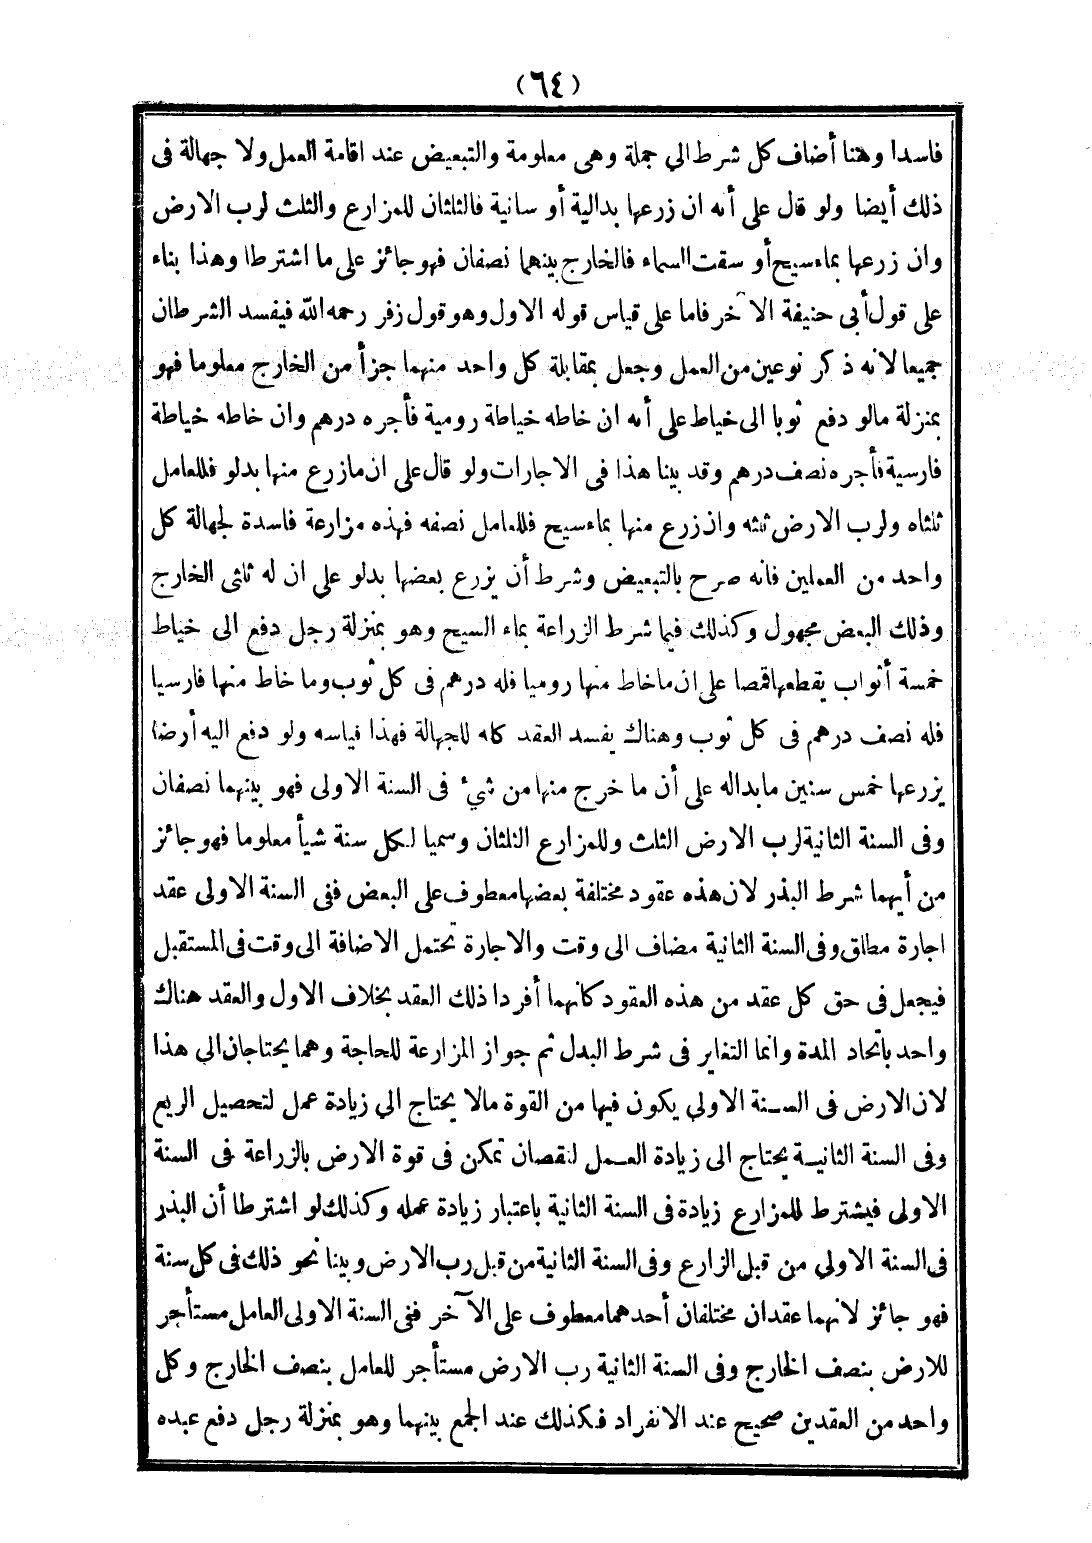 (٦٤)
فاسدا وهنا أضاف كل شرط الي جملة وهى معلومة والتبعيض عند اقامة العمل ولا جهالة فى
ذلك أيضا ولو قال علي أنه ان زرعها بدالية أو سانية فالثلثان للمزارع والثلث لرب الارض
وان زرعها بماء سيح أو سقت السماء فالخارج بينهما نصفان فهو جائز على ما اشترطا وهذا بناء
على قول أبى حنيفة الآخر فاما على قياس قوله الاول وهو قول زفر رحمه الله فيفسد الشرطان
جميعا لانه ذكر نوعين من العمل وجعل بمقابلة كل واحد منهما جزأ من الخارج معلوما فهو
بمنزلة مالو دفع ثوبا الى خياط على أنه ان خاطه خياطة رومية فأجره درهم وان خاطه خياطة
فارسية فأجره نصف درهم وقد بينا هذا فى الاجارات ولو قال على ان مازرع منها بدلو فللعامل
ثلثاه ولرب الارض ثلثه وان زرع منها بماء سيح فللعامل نصفه فهذه مزارعة فاسدة لجهالة كل
واحد من العملين فانه صرح بالتبعيض وشرط أن يزرع بعضها بدلو علي ان له ثلثى الخارج
وذلك البعض مجهول وكذلك فيما شرط الزراعة بماء السيح وهو بمنزلة رجل دفع الى خياط
خمسة أثواب يقطعها قمصا على ان ماخاط منها روميا فله درهم فى كل ثوب وما خاط منها فارسيا
فله نصف درهم فى كل ثوب وهناك يفسد العقد كله للجهالة فهذا قياسه ولو دفع اليه أرضا
يزرعها خمس سنين مابداله على أن ما خرج منها من شيء فى السنة الاولى فهو بينهما نصفان
وفى السنة الثانية لرب الارض الثلث وللمزارع الثلثان وسميا لكل سنة شيأ معلوما فهو جائز
من أيهما شرط البذر لان هذه عقود مختلفة بعضها معطوف على البعض ففى السنة الاولى عقد
اجارة مطلق وفى السنة الثانية مضاف الى وقت والاجارة تحتمل الاضافة الى وقت فى المستقبل
فيجعل فى حق كل عقد من هذه العقود كانهما أفردا ذلك العقد بخلاف الاول والعقد هناك
واحد باتحاد المدة وانما التغاير فى شرط البدل ثم جواز المزارعة للحاجة وهما يحتاجان الى هذا
لان الارض فى السنة الاولي يكون فيها من القوة مالا يحتاج الي زيادة عمل لتحصيل الريع
وفى السنة الثانية يحتاج الى زيادة العمل لنقصان تمكن فى قوة الارض بالزراعة فى السنة
الاولى فيشترط للمزارع زيادة فى السنة الثانية باعتبار زيادة عمله وكذلك لو اشترطا أن البذر
فى السنة الاولي من قبل الزارع وفى السنة الثانية من قبل رب الارض وبينا نحو ذلك فى كل سنة
فهو جائز لانهما عقدان مختلفان أحدهما معطوف على الآخر ففى السنة الاولى العامل مستأجر
للارض بنصف الخارج وفى السنة الثانية رب الارض مستأجر للعامل بنصف الخارج وكل
واحد من العقدين صحيح عند الانفراد فكذلك عند الجمع بينهما وهو بمنزلة رجل دفع عبده